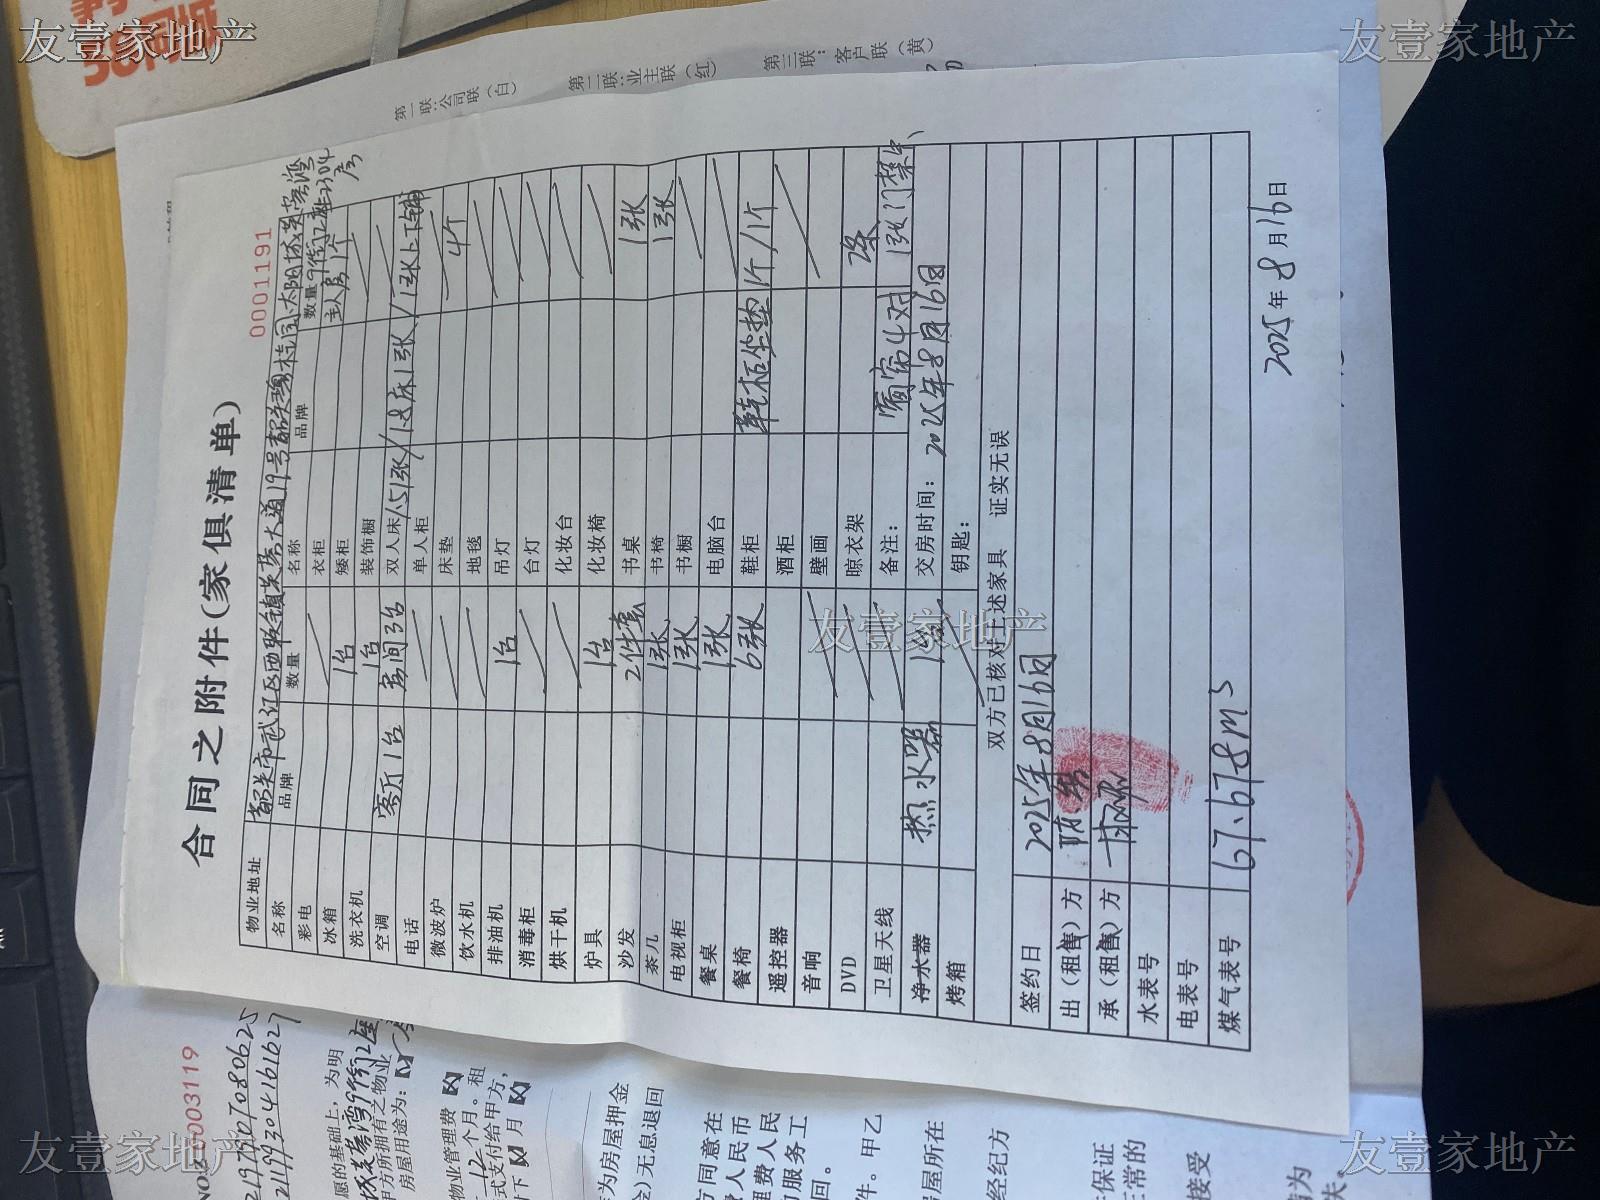 友壹家地产
友壹家地产
第一联：公司联（白）
第二联：业主联（红）
第三联：客户联（黄）
合同之附件（家俱清单）
0001191
物业地址 韶关市武江区西联镇芙蓉大道19号韶关碧桂园·太阳城芙蓉湾9街12座2304房
名称 品牌 数量 名称 品牌 数量
彩电 衣柜 主人房1个
冰箱 1台 矮柜
洗衣机 1台 装饰橱
空调 客厅1台 房间3台 双人床 1.5 1张/1.8床1张/1张上下铺
电话 单人柜
微波炉 床垫 4个
饮水机 地毯
排油机 1台 吊灯
消毒柜 台灯
烘干机 化妆台
炉具 1台 化妆椅
沙发 2件套 书桌 1张
茶几 1张 书椅 1张
电视柜 1张 书橱
餐桌 1张 电脑台
餐椅 6张 鞋柜 鞋柜坐垫 1个/1个
遥控器 酒柜
音响 壁画
DVD 晾衣架 2条
卫星天线 备注： 窗帘4对 1张门禁卡
净水器 热水器 1台 交房时间：2025年8月16日
烤箱 钥匙：
双方已核对上述家具 证实无误
签约日 2025年8月16日
出（租售）方 陈
承（租售）方
水表号
电表号
煤气表号 67.678m³
2025年8月16日
友壹家地产
NO：0003119
愿的基础上，为明
甲方所拥有之物业
房屋用途为：
物业管理费
12个月。租
式支付给甲方，
月
作为房屋押金
金）无息退回
方同意在
费人民币
理费人民
服务工
回。
件。甲乙
房屋所在
经纪方
保证
正常的
接受
失。
友壹家地产
友壹家地产